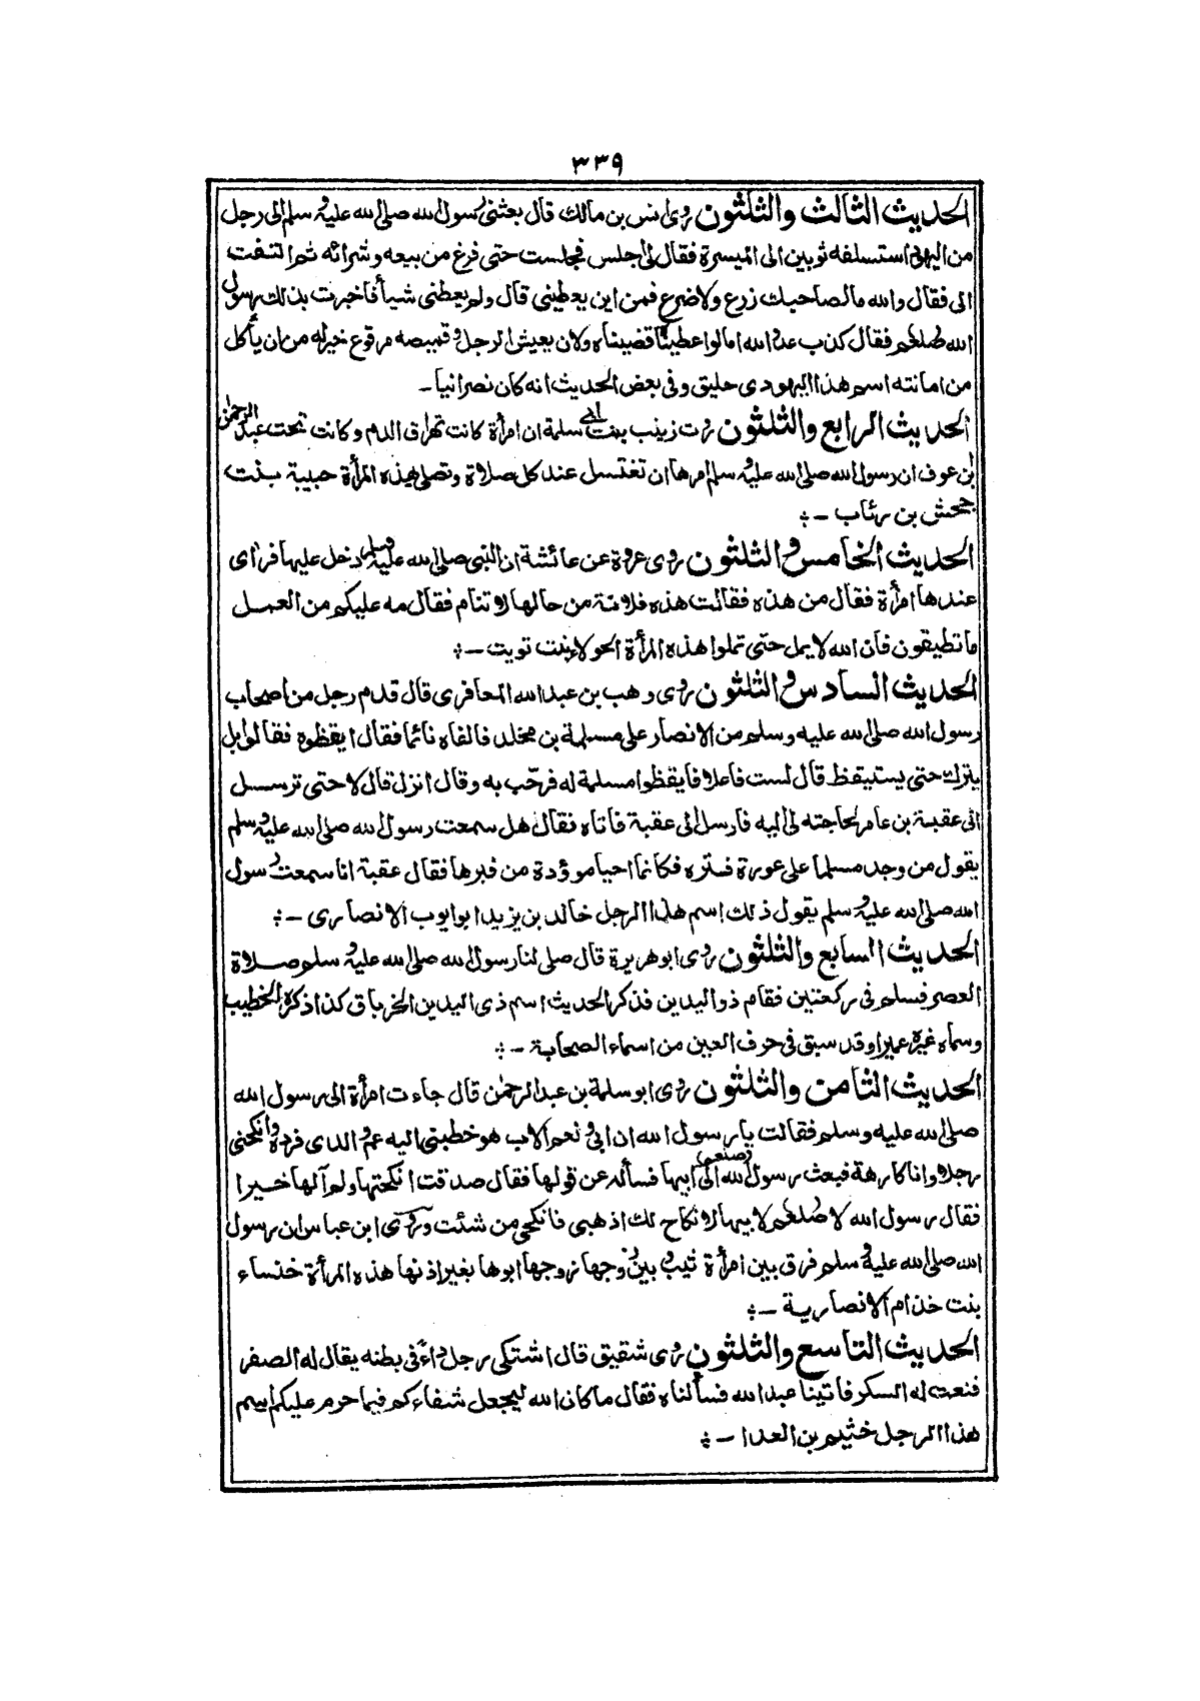 ٣٣٩
الحديث الثالث والثلثون روى انس بن مالك قال بعثنى رسول الله صلى الله عليه وسلم الى رجل
من اليهود استسلفه ثوبين الى الميسرة فقال لى اجلس فجلست حتى فرغ من بيعه وشرائه ثم التفت
الى فقال والله ما لصاحبك زرع ولا ضرع فمن اين يعطينى قال ولم يعطنى شيأ فاخبرت بذلك رسول
الله صلعم فقال كذب عدو الله اما لو اعطيتنا قضيناه ولان يعيش الرجل وقميصه مرقوع خير له من ان ياكل
من امانته اسم هذا اليهودى حليق وفى بعض الحديث انه كان نصرانيا -
الحديث الرابع والثلثون روت زينب بنت ابى سلمة ان امرأة كانت تهراق الدم وكانت تحت عبد الرحمٰن
بن عوف ان رسول الله صلى الله عليه وسلم امرها ان تغتسل عند كل صلاة وتصلى هذه المرأة حبيبة بنت
جحش بن رئاب -
الحديث الخامس والثلثون روى عروة عن عائشة ان النبى صلى الله عليه وسلم دخل عليها فرأى
عندها امرأة فقال من هذه فقالت هذه فلانة من حالها لا تنام فقال مه عليكم من العمل
ما تطيقون فان الله لا يمل حتى تملوا هذه المرأة الحولاء بنت تويت -
الحديث السادس والثلثون روى وهب بن عبد الله المعافرى قال قدم رجل من اصحاب
رسول الله صلى الله عليه وسلم من الانصار على مسلمة بن مخلد فالفاه نائما فقال ايقظوه فقالوا بل
ينزل حتى يستيقظ قال لست فاعلا فايقظوا مسلمة له فرحّب به وقال انزل قال لا حتى ترسل
الى عقبة بن عامر لحاجته لى اليه فارسل الى عقبة فاتاه فقال هل سمعت رسول الله صلى الله عليه وسلم
يقول من وجد مسلما على عورة فستره فكانما احيا موؤدة من قبرها فقال عقبة انا سمعت رسول
الله صلى الله عليه وسلم يقول ذلك اسم هذا الرجل خالد بن يزيد ابو ايوب الانصارى -
الحديث السابع والثلثون روى ابو هريرة قال صلى لنا رسول الله صلى الله عليه وسلم صلاة
العصر فسلم فى ركعتين فقام ذو اليدين فذكر الحديث اسم ذى اليدين الخرباق كذا ذكره الخطيب
وسماه غيره عميرا وقد سبق فى حرف العين من اسماء الصحابة -
الحديث الثامن والثلثون روى ابو سلمة بن عبد الرحمٰن قال جاءت امرأة الى رسول الله
صلى الله عليه وسلم فقالت يا رسول الله ان ابى ونعم الاب هو خطبنى اليه عم ولدى فرده وانكحنى
رجلا وانا كارهة فبعث رسول الله صلعم الى ابيها فسأله عن قولها فقال صدقت انكحتها ولم آلها خيرا
فقال رسول الله صلعم لابيها لا نكاح لك اذهبى فانكحى من شئت وروى ابن عباس ان رسول
الله صلى الله عليه وسلم فرق بين امرأة ثيب وبين زوجها زوجها ابوها بغير اذنها هذه المرأة خنساء
بنت خذام الانصارية -
الحديث التاسع والثلثون روى شقيق قال اشتكى رجل داءً فى بطنه يقال له الصفر
فنعت له السكر فاتينا عبد الله فسألناه فقال ما كان الله ليجعل شفاءكم فيما حرم عليكم اسم
هذا الرجل خثيم بن العدا -